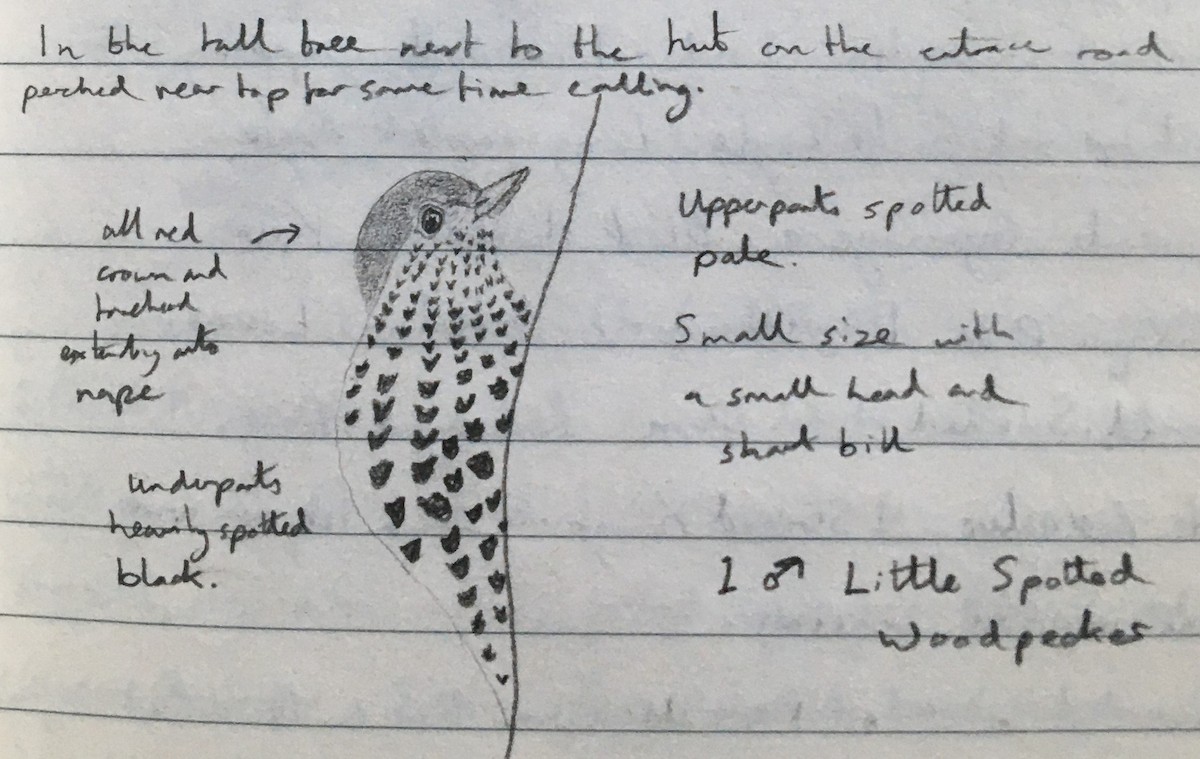 In the tall tree next to the hut on the entrance road
perched near top for some time calling.
all red
crown and
forehead
extending onto
nape
Underparts
heavily spotted
black.
Upperparts spotted
pale.
Small size with
a small head and
short bill
1 ♂ Little Spotted
Woodpecker